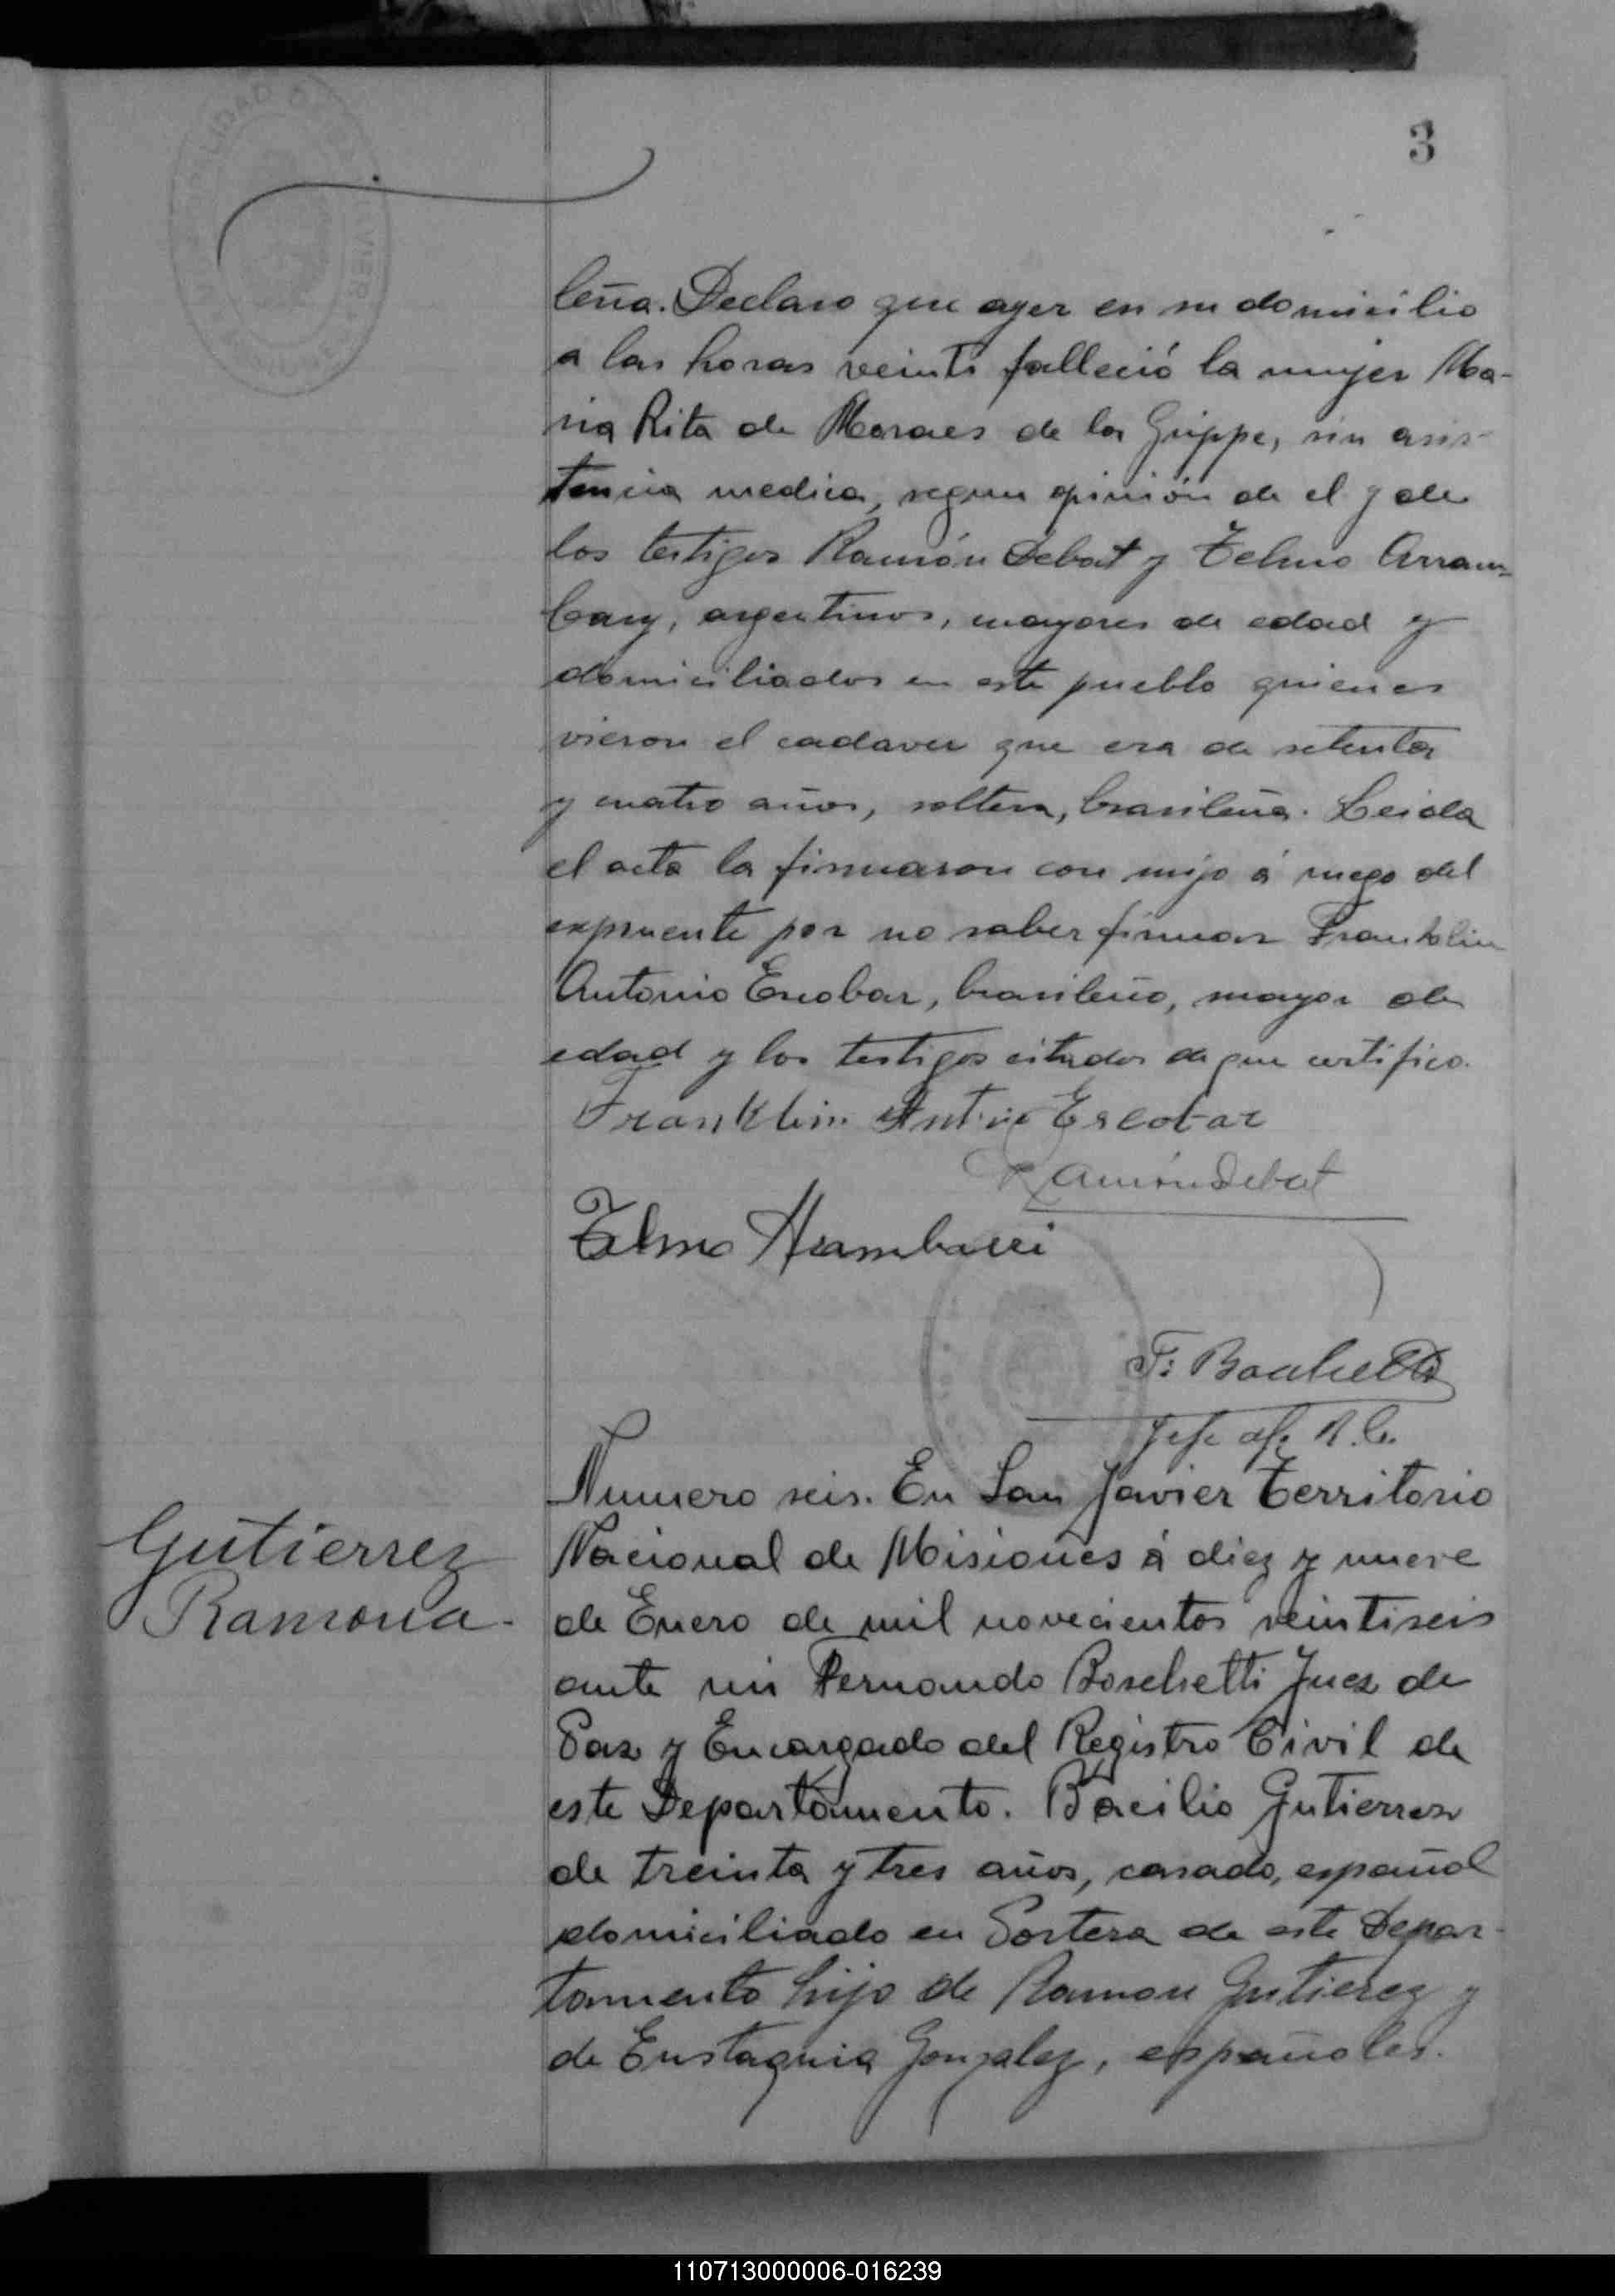 3
leña. Declaro que ayer en su domicilio
a las horas veinte falleció la mujer Ma-
ria Rita de Moraes de la Grippe, sin asis-
tencia medica, segun opinión de el y de
los testigos Ramón Debat y Telmo Arram-
bary, argentinos, mayores de edad y
domiciliados en este pueblo quienes
vieron el cadaver que era de setenta
y cuatro años, soltera, brasileña. Leida
el acta la firmaron con migo á ruego del
exponente por no saber firmar Franklin
Antonio Escobar, brasileño, mayor de
edad y los testigos citados de que certifico.
Franklin Antonio Escobar
Ramón Debat
Telmo Arambarri
F. Boschetti
Jefe de R. C.
Gutierrez
Ramona.
Numero seis. En San Javier Territorio
Nacional de Misiones á diez y nueve
de Enero de mil novecientos veintiseis
ante mi Fernando Boschetti Juez de
Paz y Encargado del Registro Civil de
este Departamento. Bacilio Gutierrez
de treinta y tres años, casado, español
domiciliado en Portera de este Depar-
tamento hijo de Ramon Gutierez y
de Eustaquia Gonzalez, españoles.
110713000006-016239